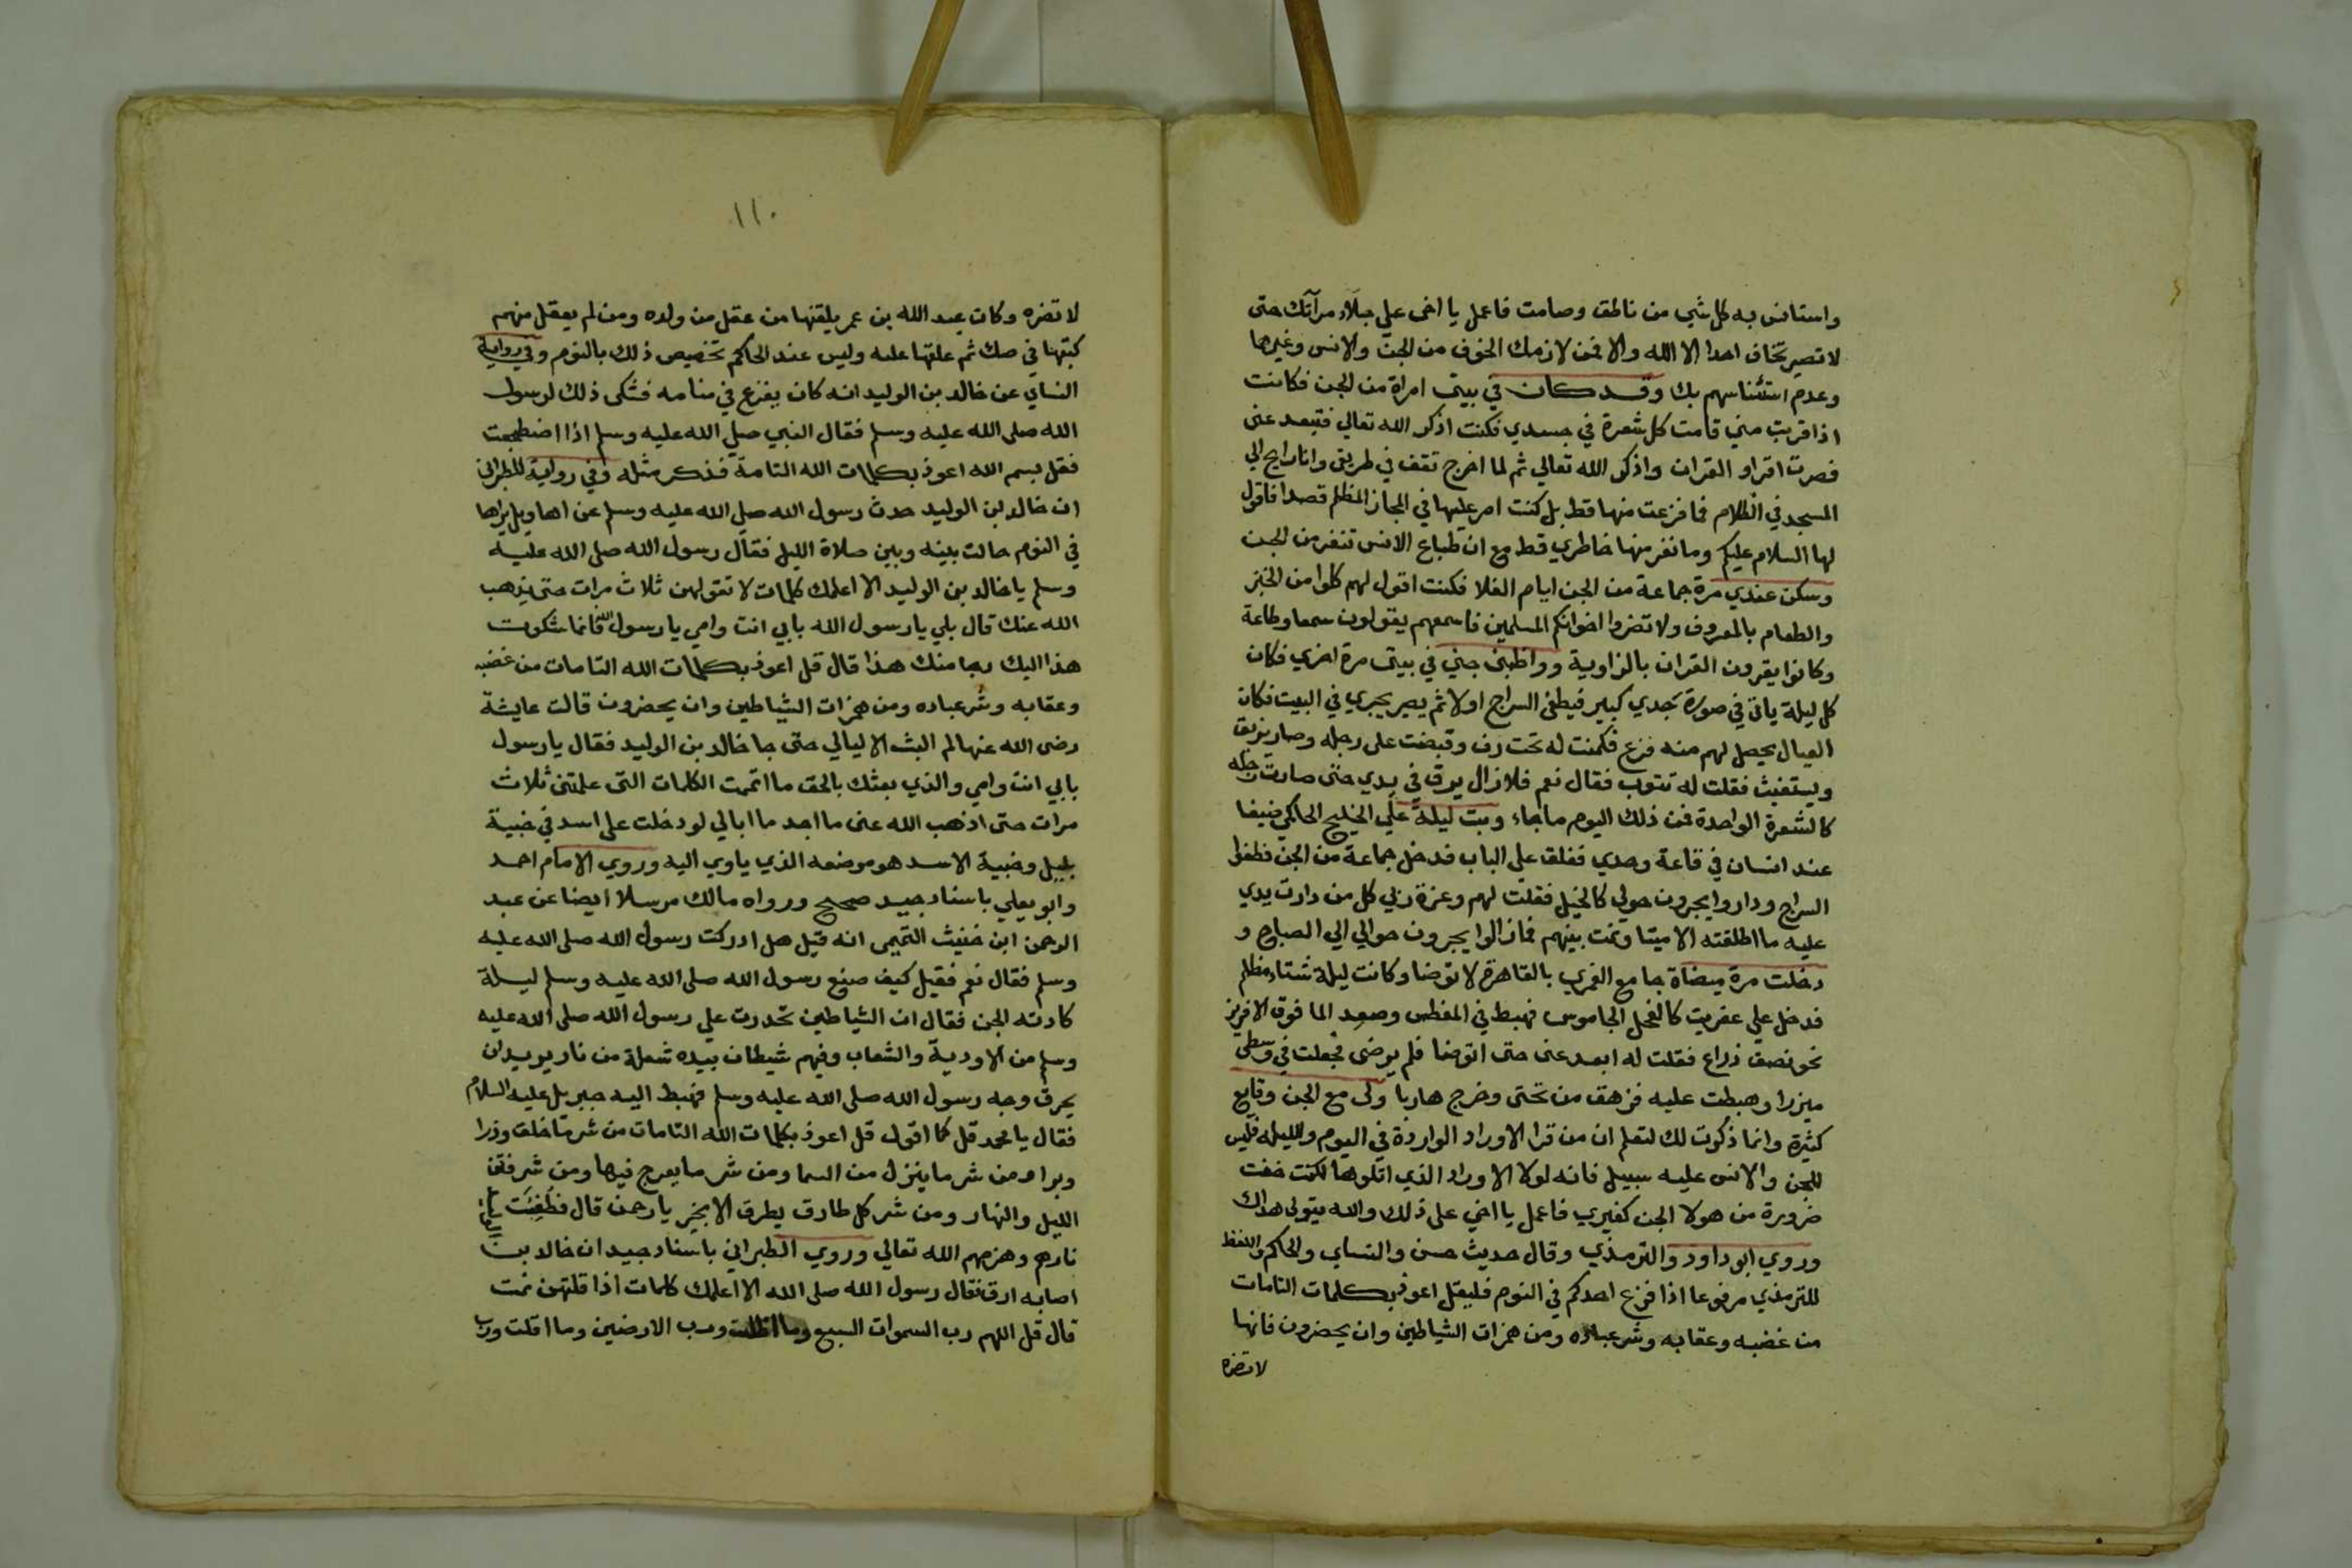 واستانس به كل شي من ناطق وصامت فاعمل يا اخى علي جلاء مرآتك حتى
لا تصير تخاف احدا الا الله والا فمن لازمك الخوف من الجن والانس وغيرها
وعدم استئناسهم بك وقد كان في بيتى امراة من الجن فكانت
اذا قربت مني قامت كل شعرة في جسدي فكنت اذكر الله تعالي فتبعد عنى
فصرت اقراو القران واذكر الله تعالي ثم لما اخرج تقف في طريقى وانا رايح الي
المسجد في الظلام فما فزعت منها قط بل كنت امر عليها في المجاز المظلم قصدا فاقول
لها السلام عليكم وما نفر منها خاطري قط مع ان طباع الانس تنفر من الجن
وسكن عندي مرة جماعة من الجن ايام الغلا فكنت اقول لهم كلوا من الخبز
والطعام بالمعروف ولا تضروا اخوانكم المسلمين فاسمعهم يقولون سمعا وطاعة
وكانوا يقرون القران بالزاوية وواظبنى جني في بيتى مرة اخري فكان
كل ليلة ياتى في صورة جدي كبير فيطفئ السراج اولا ثم يصير يجري في البيت فكان
العيال يحصل لهم منه فزع فكمنت له تحت رف وقبضت على رجله وصار يزعق
ويستغيث فقلت له تتوب فقال نعم فلا زال يرق في يدي حتى صارت رجله
كالشعرة الواحدة فمن ذلك اليوم ما جاء وبت ليلة علي الخليج الحاكمي ضيفا
عند انسان في قاعة وحدي فغلق علي الباب فدخل جماعة من الجن فطفوا
السراج وداروا يجرون حولي كالخيل فقلت لهم وعزة ربي كل من دارت يدي
عليه ما اطلقته الا ميتا ونمت بينهم فما زالوا يجرون حوالي الي الصباح و
دخلت مرة ميضاة جامع الغمري بالقاهرة لاتوضا وكانت ليلة شتاء مظلم
فدخل علي عفريت كالفحل الجاموس فهبط في المغطس وصعد الما فوق الافريز
نحو نصف ذراع فقلت له ابعد عنى حتى اتوضا فلم يرضى فجعلت في وسطى
ميزرا وهبطت عليه فزهق من تحتى وخرج هاربا ولى مع الجن وقايع
كثيرة وانما ذكرت لك لتعلم ان من قرا الاوراد الواردة في اليوم والليله فليس
للجن والانس عليه سبيل فانه لولا الاوراد الذي اتلوها لكنت خفت
ضرورة من هولا الجن كغيري فاعمل يا اخي على ذلك والله يتولى هداك
وروي ابو داود والترمذي وقال حديث حسن والنساي والحاكم واللفظ
للترمذي مرفوعا اذا فزع احدكم في النوم فليقل اعوذ بكلمات التامات
من غضبه وعقابه وشر عباده ومن همزات الشياطين وان يحضرون فانها
لا تضره
١١٠
لا تضره وكان عبد الله بن عمر يلقنها من عقل من ولده ومن لم يعقل منهم
كبتها في صك ثم علقها عليه وليس عند الحاكم تخصيص ذلك بالنوم وفي رواية
النساي عن خالد بن الوليد انه كان يفزع في منامه فشكى ذلك لرسول
الله صلى الله عليه وسلم فقال النبي صلي الله عليه وسلم اذا اضطجعت
فقل بسم الله اعوذ بكلمات الله التامة فذكر مثله وفي رواية للطبرانى
ان خالد بن الوليد حدث رسول الله صلي الله عليه وسلم عن اهاويل يراها
في النوم حالت بينه وبين صلاة الليل فقال رسول الله صلى الله عليه
وسلم يا خالد بن الوليد الا اعلمك كلمات لا تقولهن ثلاث مرات حتى يذهب
الله عنك قال بلي يا رسول الله بابي انت وامي يا رسول الله فانما شكوت
هذا اليك رجا منك هذا قال قل اعوذ بكلمات الله التامات من غضبه
وعقابه وشر عباده ومن همزات الشياطين وان يحضرون قالت عايشة
رضى الله عنها لم البث الا ليالي حتى جا خالد بن الوليد فقال يا رسول
بابي انت وامي والذي بعثك بالحق ما اتممت الكلمات التى علمتنى ثلاث
مرات حتى اذهب الله عنى ما اجد ما ابالي لو دخلت على اسد في خبية
بليل وخبية الاسد هو موضعه الذي ياوي اليه وروي الامام احمد
وابو يعلي باسناد جيد صحيح ورواه مالك مرسلا ايضا عن عبد
الرحمن ابن خنيث التميمى انه قيل هل ادركت رسول الله صلى الله عليه
وسلم فقال نعم فقيل كيف صنع رسول الله صلى الله عليه وسلم ليلة
كادته الجن فقال ان الشياطين تحدرت علي رسول الله صلى الله عليه
وسلم من الاودية والشعاب وفيهم شيطان بيده شعلة من نار يريد ان
يحرق وجه رسول الله صلى الله عليه وسلم فهبط اليه جبريل عليه السلام
فقال يا محمد قل كما اقول قل اعوذ بكلمات الله التامات من شر ما خلق وذرا
وبرا ومن شر ما ينزل من السما ومن شر ما يعرج فيها ومن شر فتن
الليل والنهار ومن شر كل طارق يطرق الا بخير يا رحمن قال فطفِئَت
نارهم وهزمهم الله تعالي وروي الطبراني باسناد جيد ان خالد بن
اصابه ارق فقال رسول الله صلى الله الا اعلمك كلمات اذا قلتهن نمت
قال قل اللهم رب السموات السبع وما اظلت ورب الارضين وما اقلت ورب